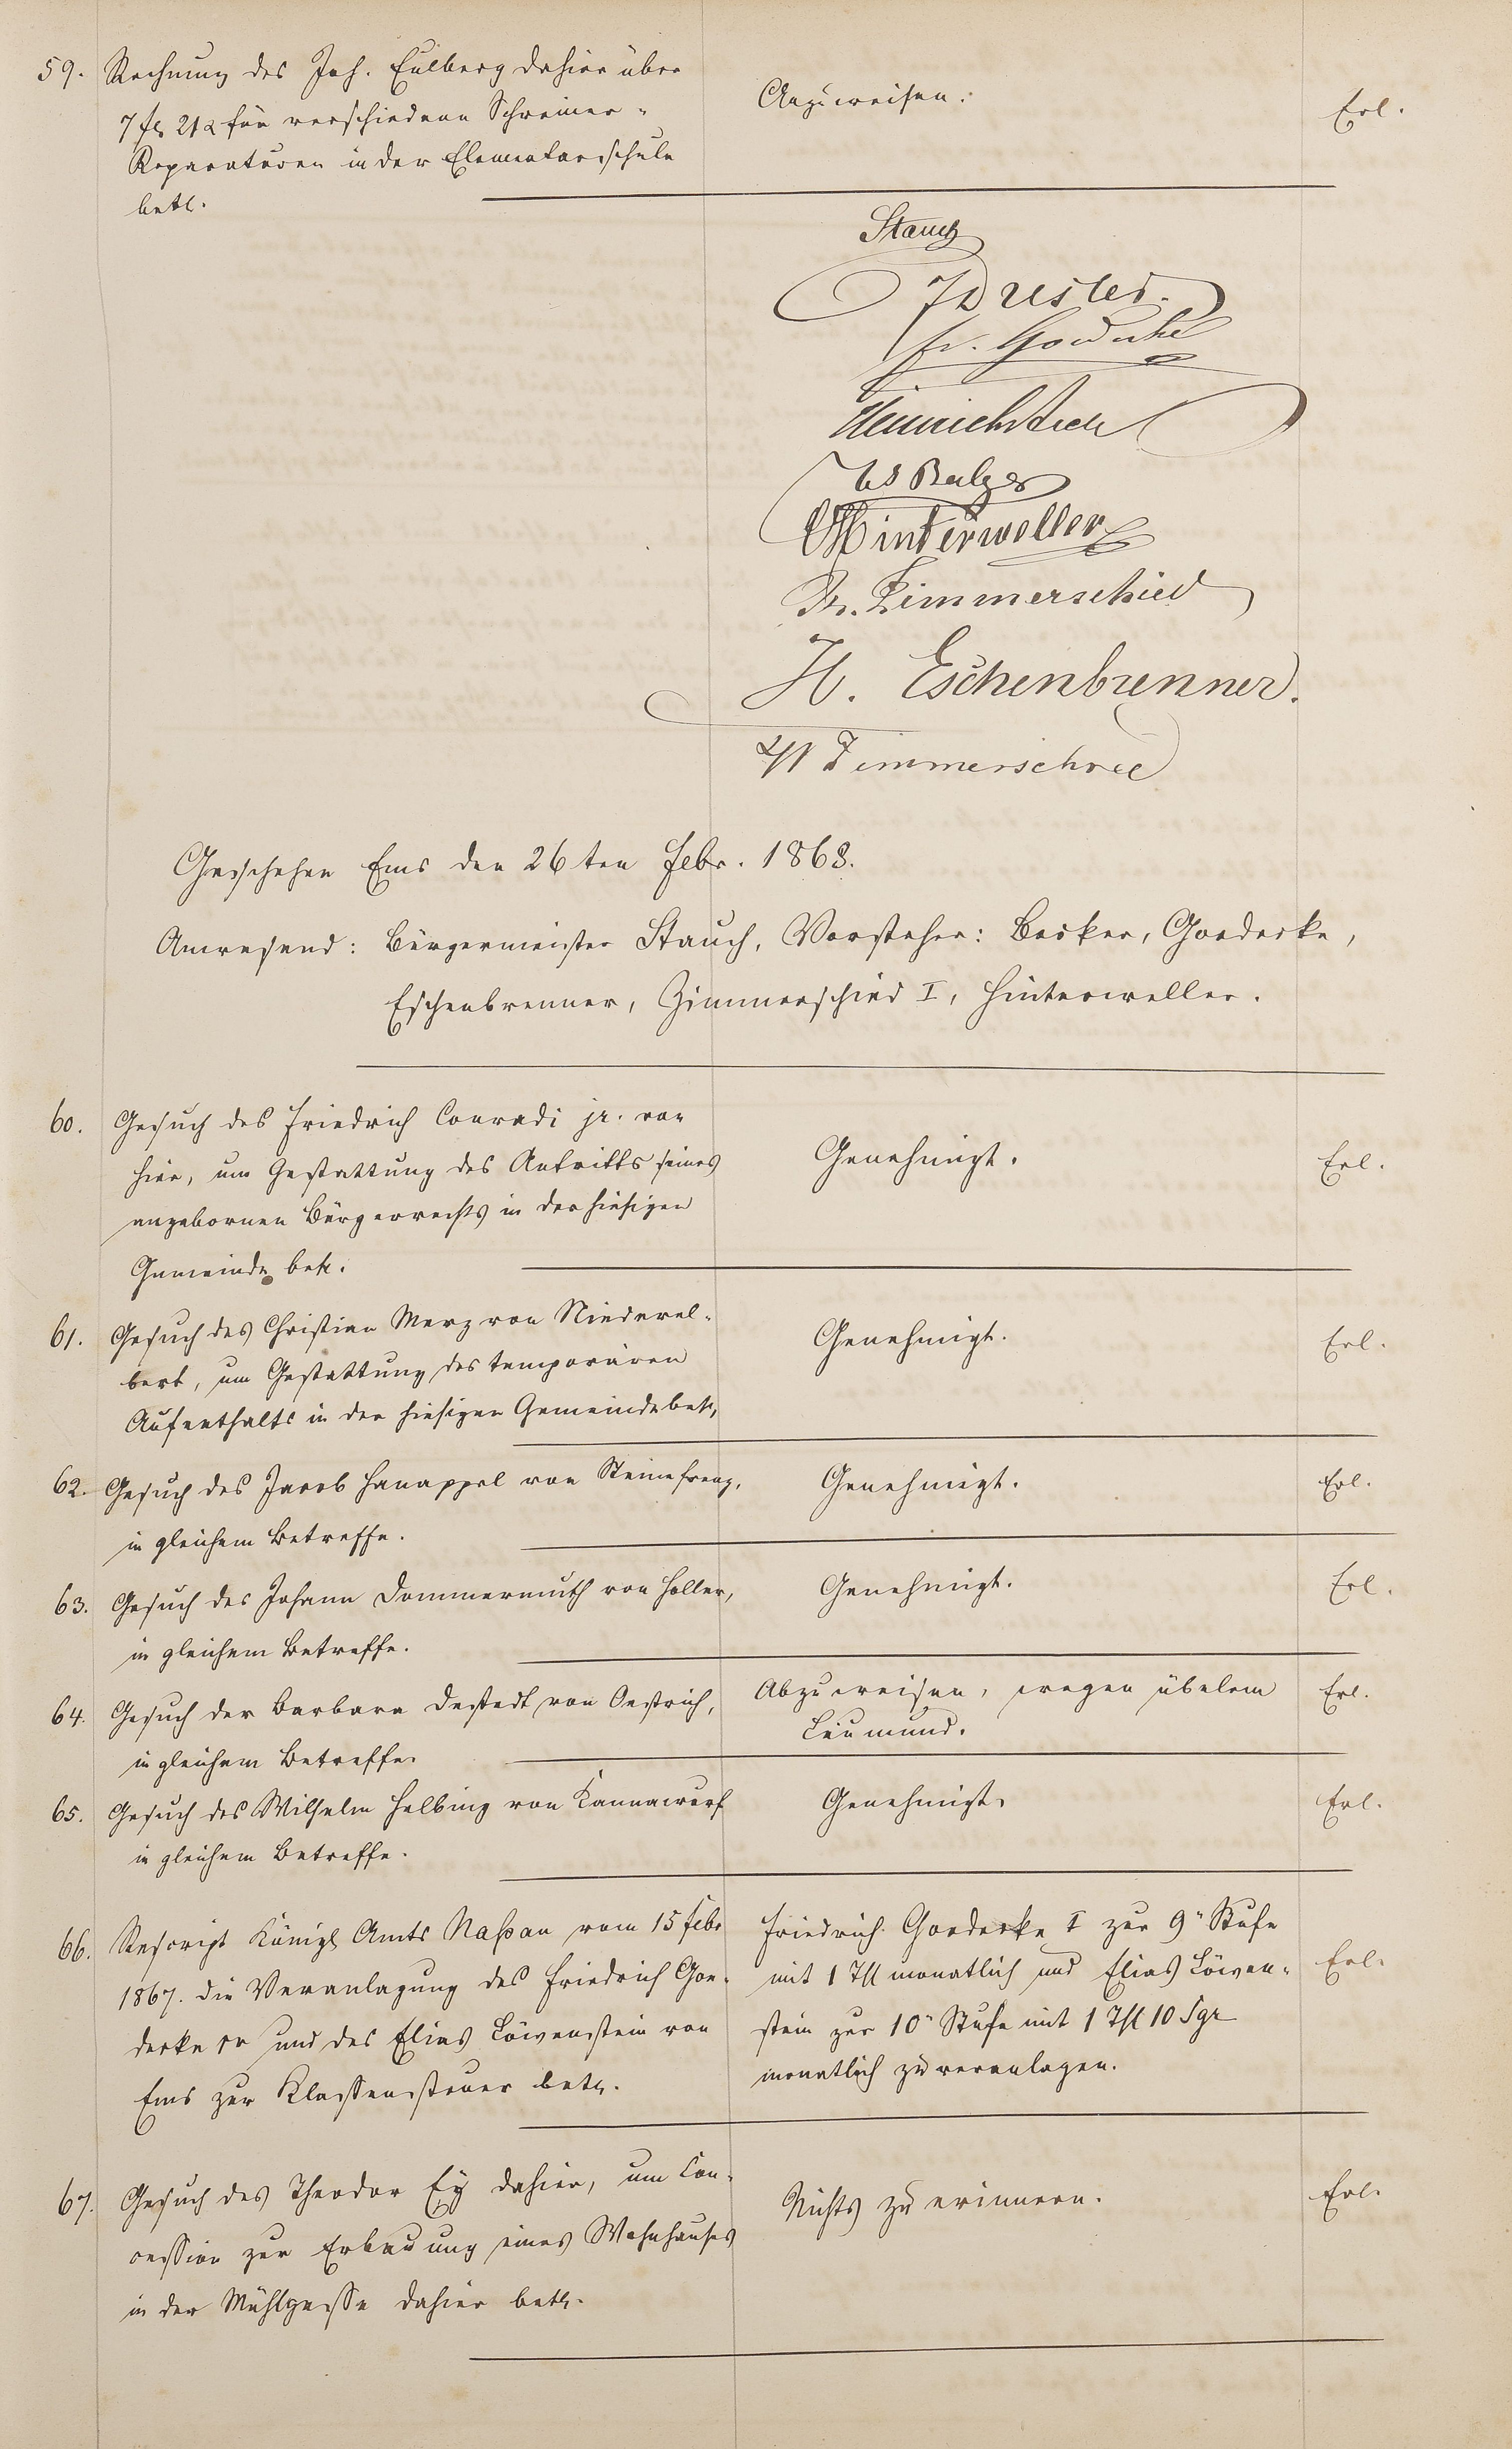 59. Rechnung des Joh. Eulberg dahier über
7 fl 21 x für verschiedene Schreiner-
Reparaturen in der Elementarschule
betr.
Anzuweisen.
Erl.
Stauch
Fr. Goedecke
Balzer
Hinterweller
Fr. Zimmerschied
H. Eschenbrenner.
W Zimmerschied
Geschehen Ems den 26ten Febr. 1868.
Anwesend: Bürgermeister Stauch, Vorsteher: Becker, Goedecke,
Eschenbrenner, Zimmerschied I, Hinterweller.
60. Gesuch des Friedrich Conradi jr. von
hier, um Gestattung des Antritts seines
angebornen Bürgerrechts in der hiesigen
Gemeinde betr.
Genehmigt.
Erl.
61. Gesuch des Christian Merz von Niederel-
bert, um Gestattung des temporären
Aufenthalts in der hiesigen Gemeinde betr,
Genehmigt.
Erl.
62. Gesuch des Jacob Hanappel von Steinefrenz,
in gleichem Betreffe.
Genehmigt.
Erl.
63. Gesuch des Johann Dommermuth von Holler,
in gleichem Betreffe.
Genehmigt.
Erl.
64. Gesuch der Barbara Destedt von Oestrich,
in gleichem Betreffe.
Abzuweisen, wegen übelem
Leumund.
Erl.
65. Gesuch des Wilhelm Helbing von Kannawurf
in gleichem Betreffe.
Genehmigt.
Erl.
66. Rescript Königl Amts Naßau vom 15 Febr
1867. die Veranlagung des Friedrich Goe-
decke sr und des Elias Löwenstein von
Ems zur Klassensteuer betr.
Friedrich Goedecke I zur 9" Stufe
mit 1 Thl monatlich und Elias Löwen-
stein zur 10" Stufe mit 1 Thl 10 Sgr
monatlich zu veranlagen.
Erl.
67. Gesuch des Theodor Ey dahier, um Con-
cession zur Erbauung eines Wohnhauses
in der Mühlgasse dahier betr.
Nichts zu erinnern.
Erl.